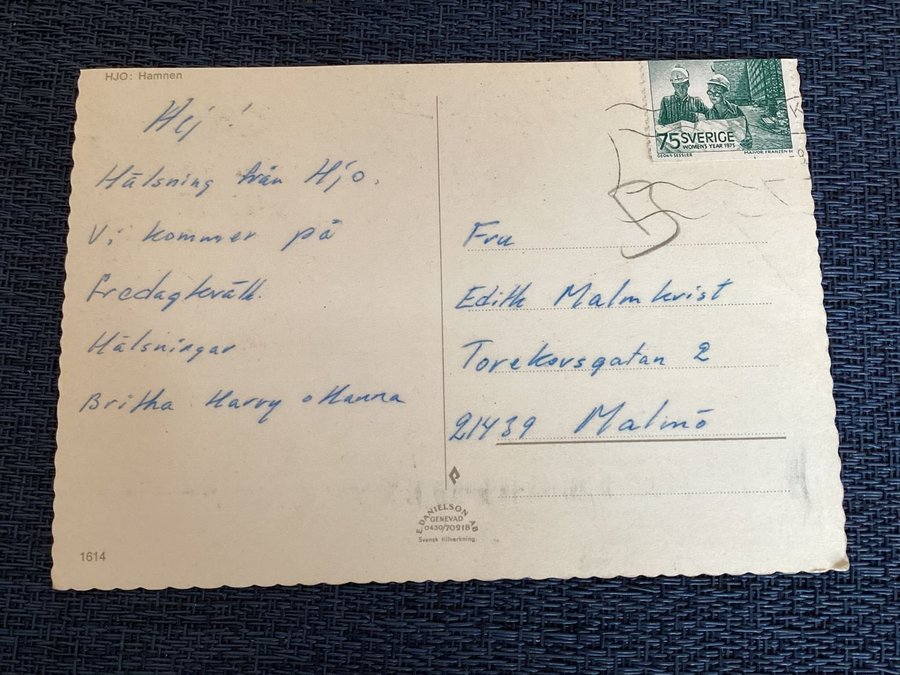 HJO: Hamnen
Hej!
Hälsning från Hjo.
Vi kommer på
fredagkväll.
Hälsningar
Britha Harry o Hanna
75 SVERIGE
WOMEN'S YEAR 1975
GEORG SESSLER
MAJVOR FRANZÉN
5
Fru
Edith Malmkvist
Torekovsgatan 2
21439 Malmö
E. DANIELSON AB
GENEVAD
0430/70918
Svensk tillverkning.
1614